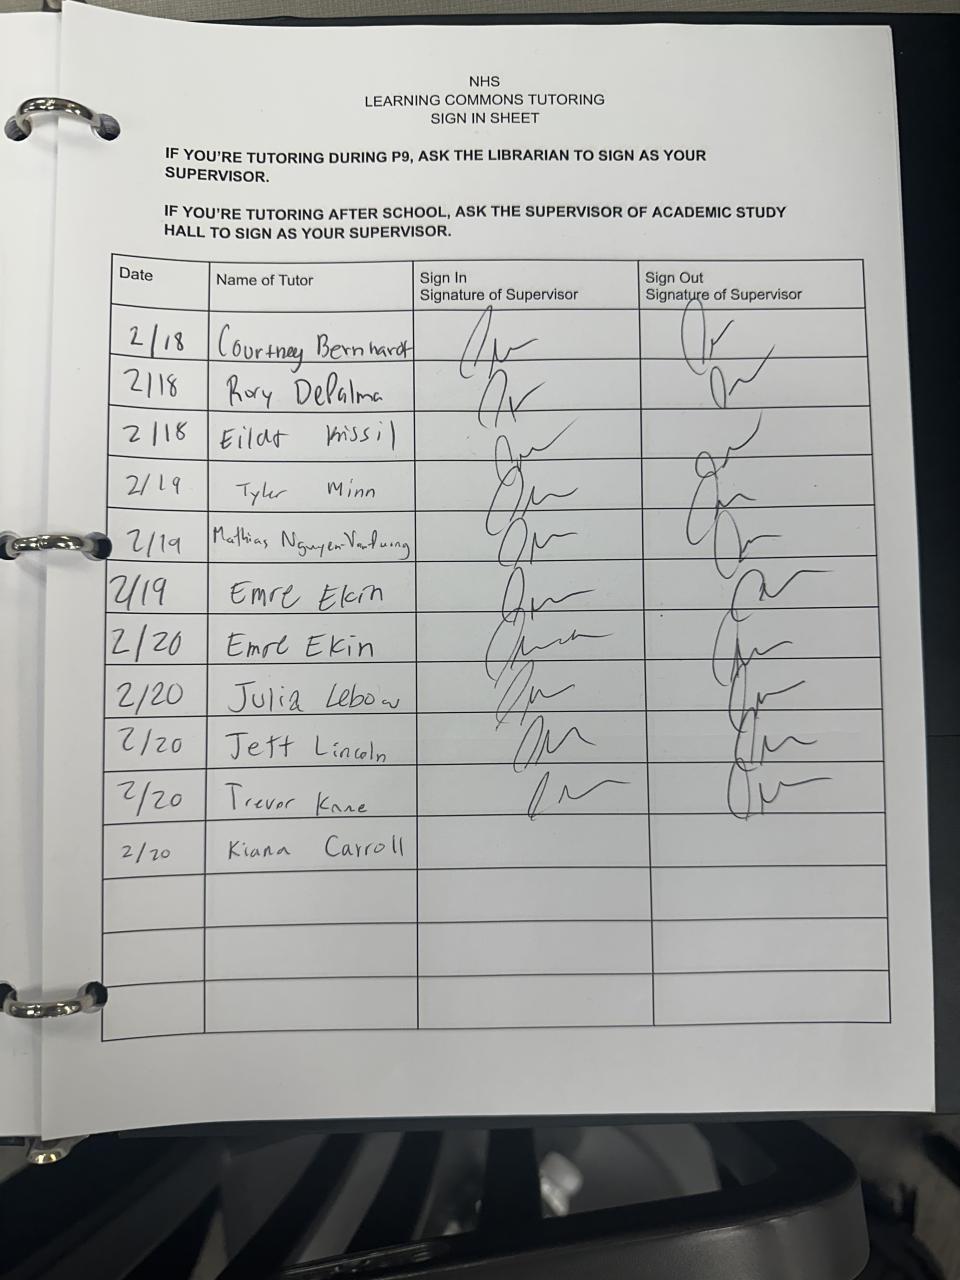 NHS
LEARNING COMMONS TUTORING
SIGN IN SHEET
IF YOU'RE TUTORING DURING P9, ASK THE LIBRARIAN TO SIGN AS YOUR
SUPERVISOR.
IF YOU'RE TUTORING AFTER SCHOOL, ASK THE SUPERVISOR OF ACADEMIC STUDY
HALL TO SIGN AS YOUR SUPERVISOR.
Date Name of Tutor Sign In Sign Out
Signature of Supervisor Signature of Supervisor
2/18 Courtney Bernhardt
2/18 Rory DePalma
2/18 Eildt Krissil
2/19 Tyler Minn
2/19 Mathias Nguyen-
2/19 Emre Ekin
2/20 Emre Ekin
2/20 Julia Lebow
2/20 Jett Lincoln
2/20 Trevor Kane
2/20 Kiana Carroll